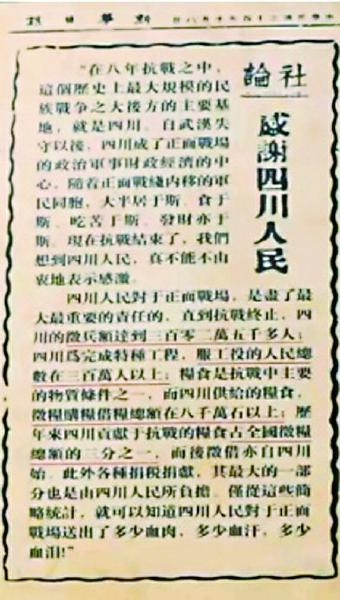 新華日報
社論
感謝四川人民
“在八年抗戰之中，
這個歷史上最大規模的民
族戰争之大後方的主要基
地，就是四川。自武漢失
守以後，四川成了正面戰場
的政治軍事財政經濟的中
心，隨着正面戰綫内移的軍
民同胞，大半居于斯、食于
斯、吃苦于斯、發財亦于
斯。現在抗戰結束了，我們
想到四川人民，真不能不由
衷地表示感激。
四川人民對于正面戰場，是盡了最
大最重要的責任的，直到抗戰終止，四
川的徵兵額達到三百零二萬五千多人；
四川爲完成特種工程，服工役的人民總
數在三百萬人以上；糧食是抗戰中主要
的物質條件之一，而四川供給的糧食，
徵糧購糧借糧總額在八千萬石以上；歷
年來四川貢獻于抗戰的糧食占全國徵糧
總額的三分之一，而後徵借亦自四川
始。此外各種捐税捐獻，其最大的一部
分也是由四川人民所負擔。僅從這些簡
略統計，就可以知道四川人民對于正面
戰場送出了多少血肉，多少血汗，多少
血泪！”